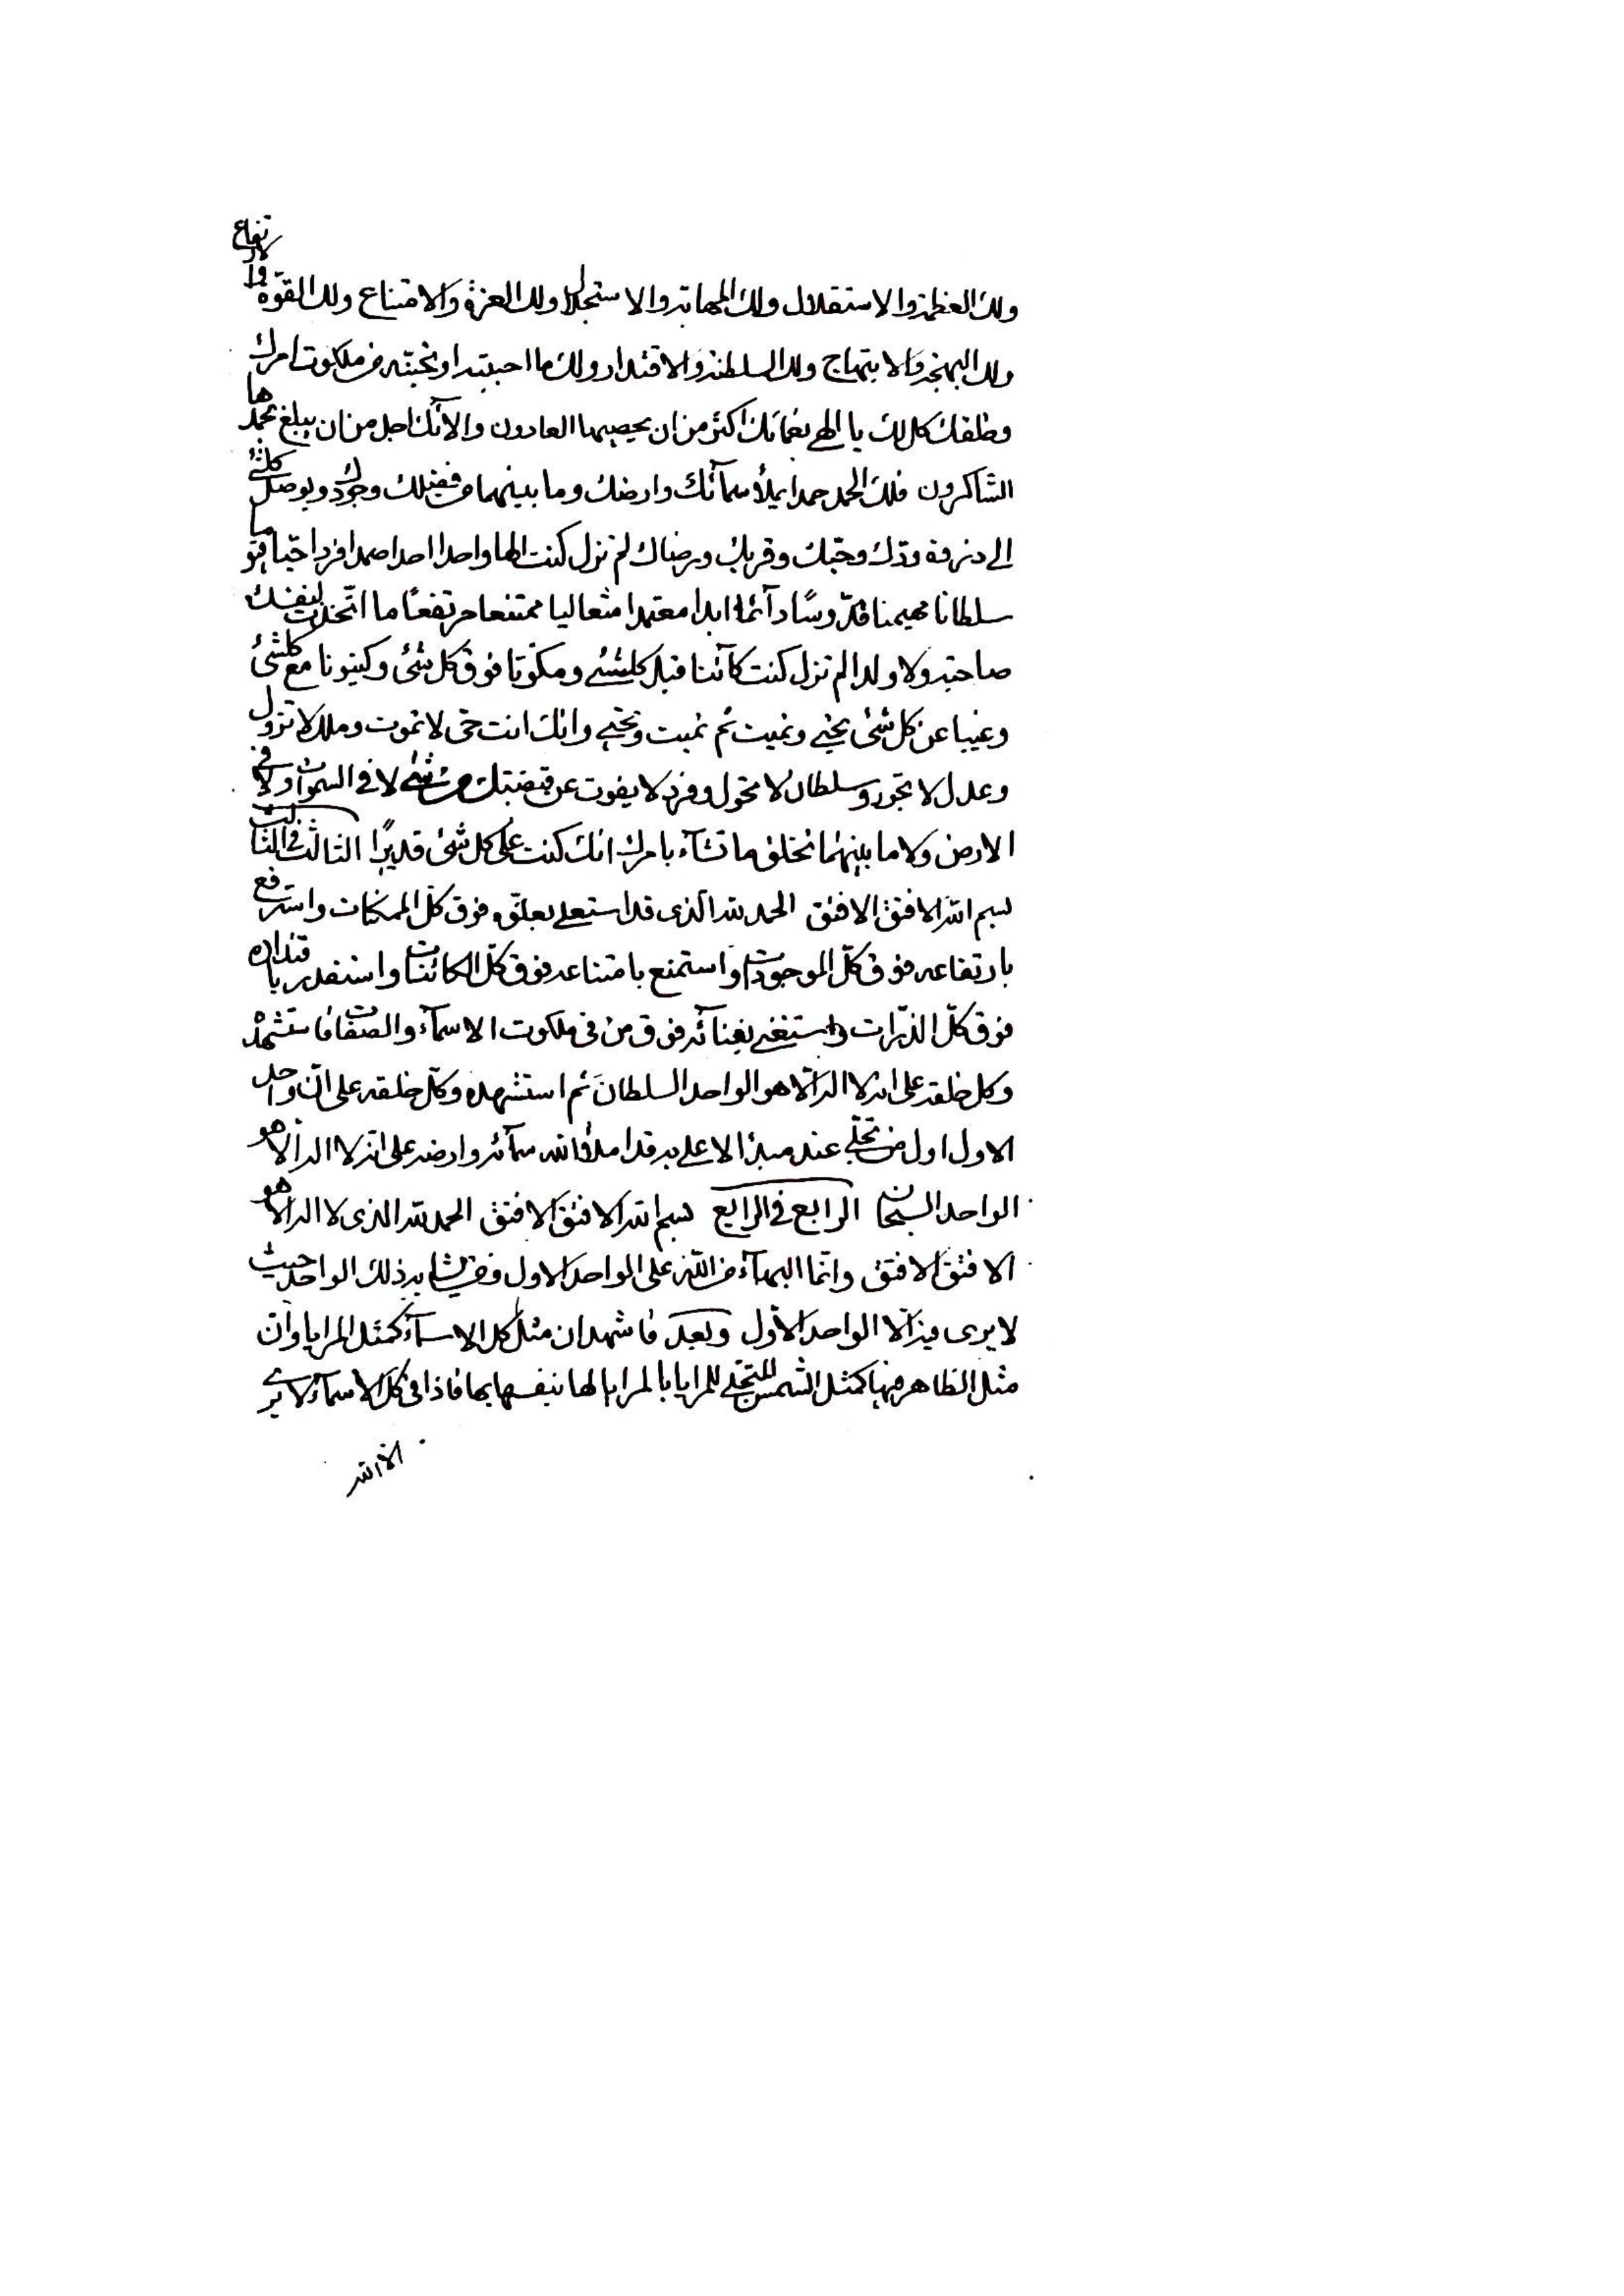 ولك العظمة والاستقلال ولك المهابة والاستجلال ولك العزة والامتناع ولك القوة والارتفاع
ولك البهجة والابتهاج ولك السلطنة والاقتدار ولك ما احببته او تحبنه من ملكوت امرك
وخلقك كل لك يا الهي نعمائك اكثر من ان يحصيها العادون والآئك اجل من ان يبلغ بحمدها
الشاكرون فلك الحمد حمدا يملأ سمآئك وارضك وما بينهما من فضلك وجودك ويوصل كلشئ
الى ودك وحبك وقربك ورضاك لم تزل كنت الها واحدا احدا صمدا فردا حيا قيوما
سلطانا مهيمنا قدّوسًا دآئما ابدا معتمدا متعاليا ممتنعا مرتفعًا ما اتّخذت لنفسك
صاحبة ولا ولدا لم تزل كنت كآئنا قبل كلشئ ومكوّنا فوق كل شئ وكينونا مع كلشئ
وغنيا عن كل شئ تحيي وتميت ثم تميت وتحيي وانك انت حى لا تموت وملك لا تزول
وعدل لا تجور وسلطان لا تحول وفرد لا يفوت عن قبضتك من شئ لا فى السموات ولا فى
الارض ولا ما بينهما تخلق ما تشآء بامرك انك كنت على كل شئ قديرًا الثالث فى الثالث
بسم اللّه الافتق الافتق الحمد للّه الذى قد استعلى بعلوّه فوق كلّ الممكنات واسترفع
بارتفاعه فوق كلّ الموجودات واستمنع بامتناعه فوق كلّ الكائنات واستقدر باقتداره
فوق كلّ الذرّات واستغنى بغنآئه فوق من فى ملكوت الاسمآء والصفات فاستشهده
وكل خلقه على انه لا اله الّا هو الواحد السلطان ثم استشهده وكلّ خلقه على انّ واحد
الاول اول من تجلّى عند مبدأ الاعلى به قد املأ اللّه سمآئه وارضه على انه لا اله الا هو
الواحد السبحان الرابع فى الرابع بسم اللّه الافتق الافتق الحمد للّه الذى لا اله الا هو
الافتق الافتق وانّما البهآء من اللّه على الواحد الاول ومن يشابه ذلك الواحد حيث
لا يرى فيه الّا الواحد الاول وبعد فاشهد ان مثل كل الاسمآء كمثل المرايا وانّ
مثل الظاهر فيها كمثل الشمس المتجلى للمرايا بالمرايا لها بنفسها بها فاذا فى كل الاسمآء لا يرى
الا اللّه